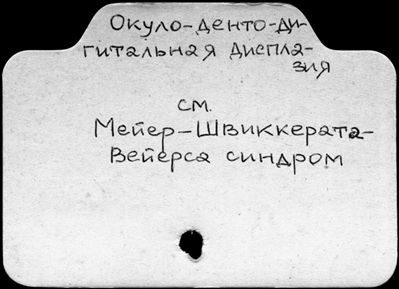 Окуло-денто-ди-
гитальная диспла-
зия
см.
Мейер-Швиккерата-
Вейерса синдром